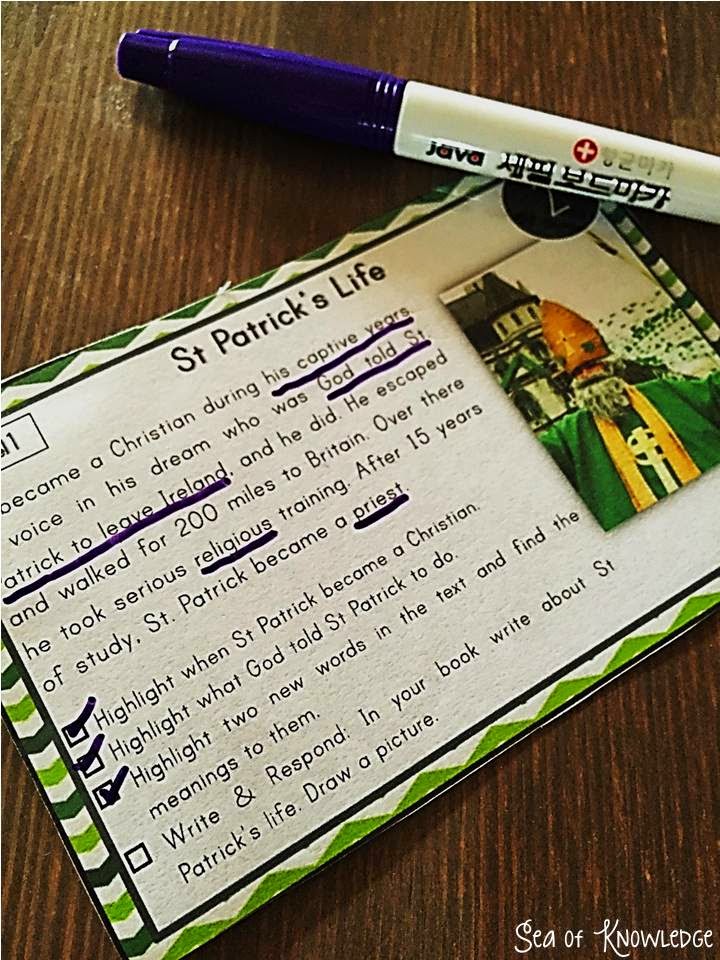 java 보드마카
항균마카
St Patrick's Life
became a Christian during his captive years.
voice in his dream who was God told St.
atrick to leave Ireland, and he did. He escaped
and walked for 200 miles to Britain. Over there
he took serious religious training. After 15 years
of study, St. Patrick became a priest.
Highlight when St Patrick became a Christian.
Highlight what God told St Patrick to do.
Highlight two new words in the text and find the
meanings to them.
Write & Respond: In your book write about St
Patrick's life. Draw a picture.
Sea of Knowledge